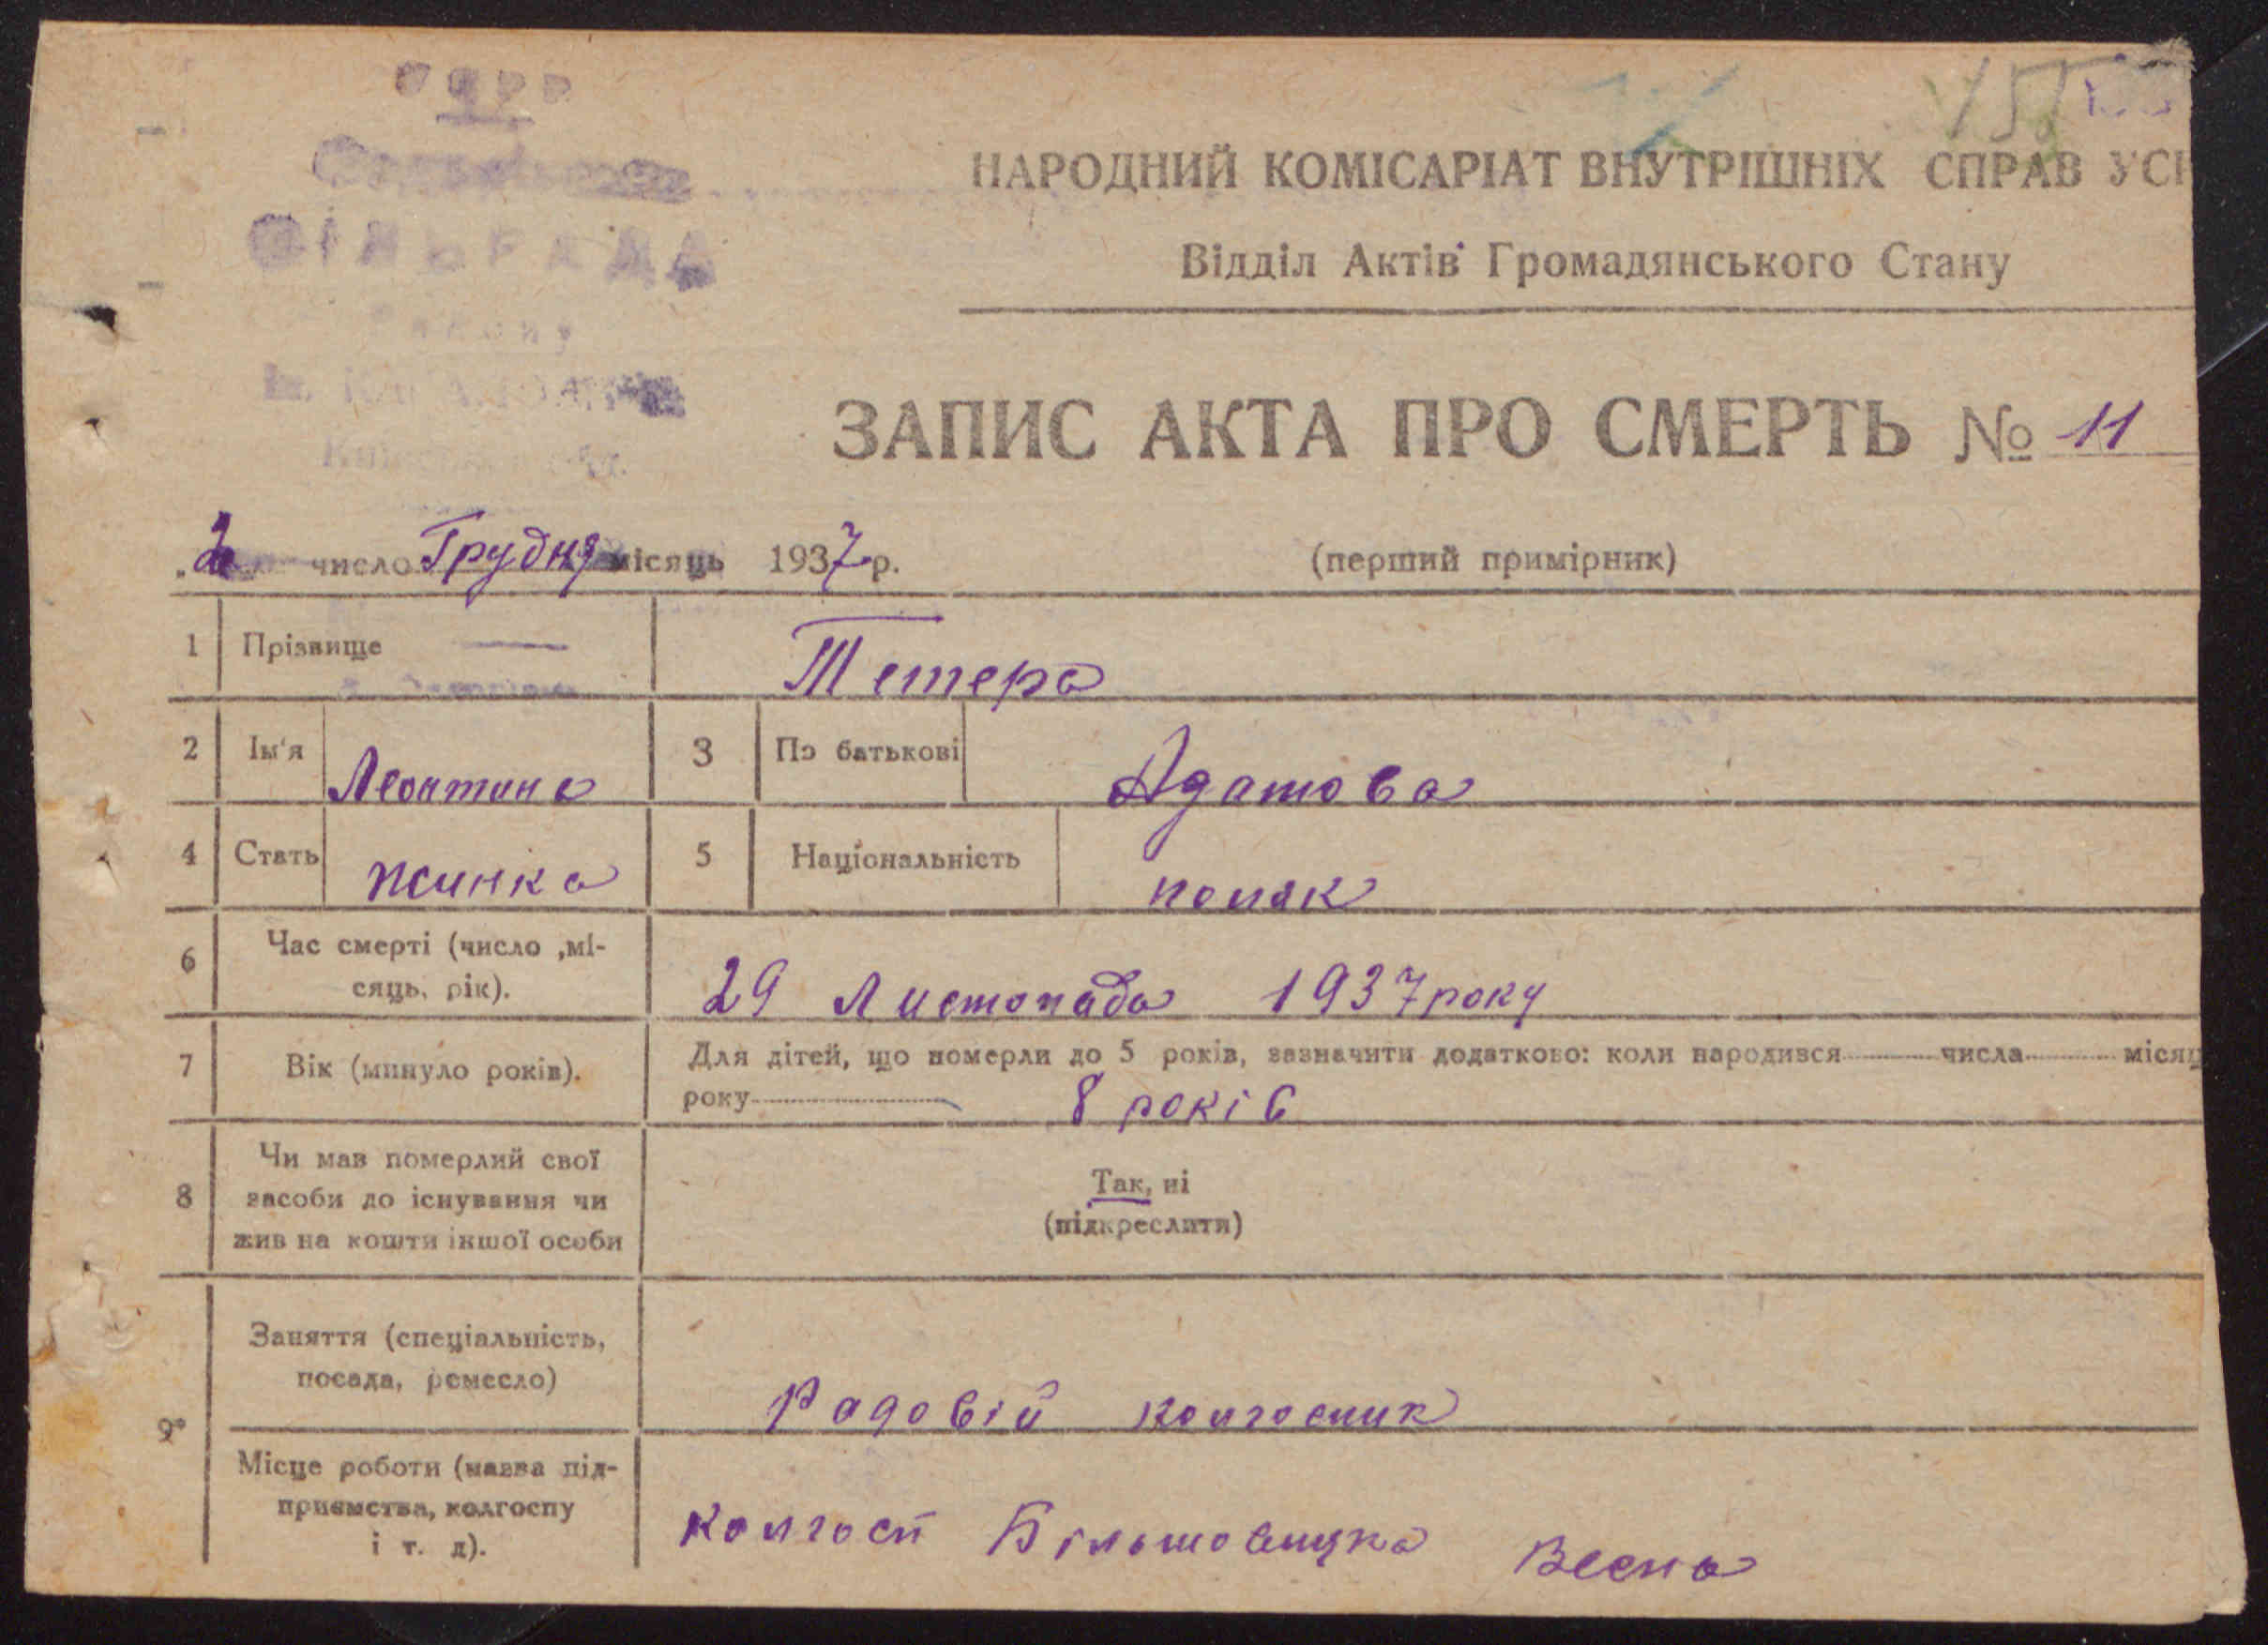 УСРР
СІЛЬРАДА
Району
НАРОДНИЙ КОМІСАРІАТ ВНУТРІШНІХ СПРАВ УСР
Відділ Актів Громадянського Стану
ЗАПИС АКТА ПРО СМЕРТЬ № 11
"2" число Грудня місяць 1937 р.
(перший примірник)
1 Прізвище Тетера
2 Ім'я Леонтина 3 По батькові Адамова
4 Стать жинка 5 Національність поляк
6 Час смерті (число ,мі-
сяць, рік). 29 Листопада 1937 року
7 Вік (минуло років). Для дітей, що померли до 5 років, зазначити додатково: коли народився числа місяц
року 8 років
8 Чи мав померлий свої
засоби до існування чи
жив на кошти іншої особи
Так, ні
(підкреслити)
9 Заняття (спеціальність,
посада, ремесло) Радовій колгосник
Місце роботи (назва під-
приємства, колгоспу
і т. д). Колгосп Більшовицка Весна